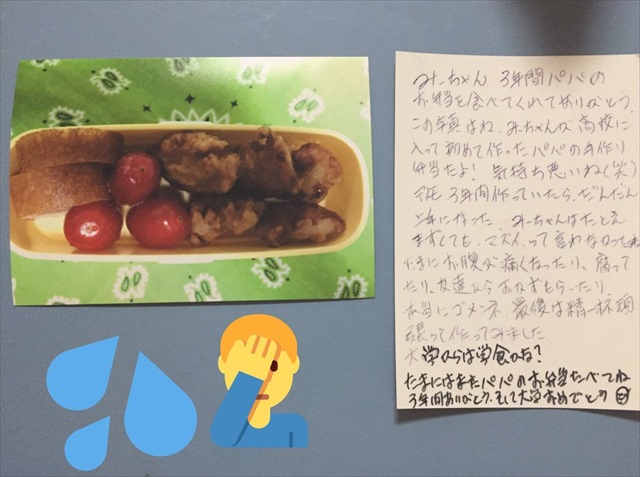 みーちゃん 3年間パパの
お弁当を食べてくれてありがとう。
この写真はね、みーちゃんが高校に
入って初めて作ったパパの手作り
弁当だよ! 気持ち悪いね(笑)
3年間作っていたら、だんだん
上手になった みーちゃんはたとえ
まずくても、マズイ、って言わなかった
たまにお腹が痛くなったり、腐って
たり、友達からおかずもらったり、
本当にゴメンネ 最後は精一杯頑
張って作ってみました
大学からは学食かな?
たまにはまたパパのお弁当たべてね
3年間ありがとう。そして大学おめでとう